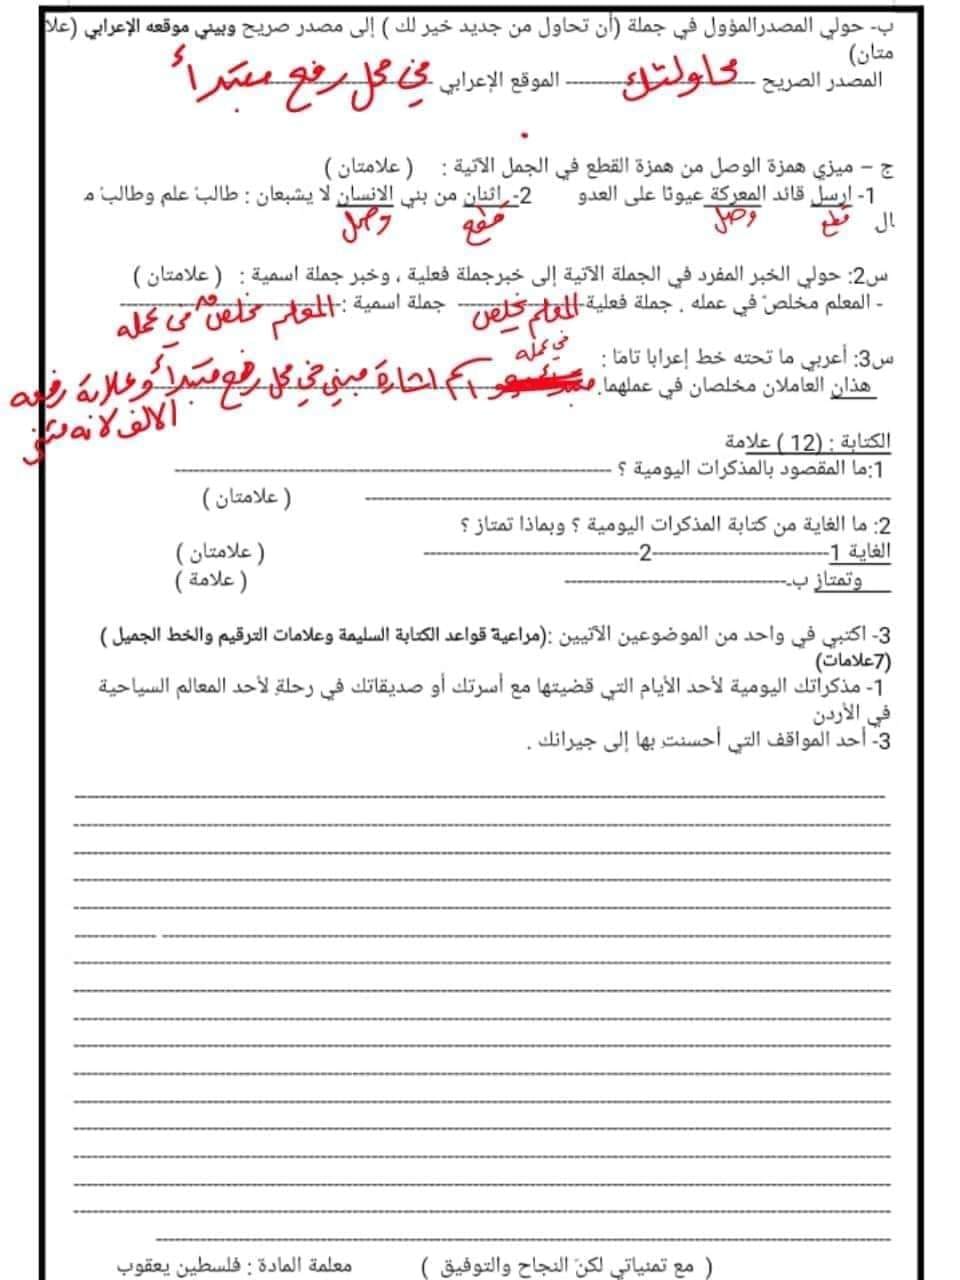 ب- حولي المصدرالمؤول في جملة (أن تحاول من جديد خير لك ) إلى مصدر صريح وبيني موقعه الإعرابي (علا
متان)
المصدر الصريح محاولتك الموقع الإعرابي في محل رفع مبتدأ
ج – ميزي همزة الوصل من همزة القطع في الجمل الآتية : ( علامتان )
1- ارسل قائد المعركة عيونا على العدو 2- اثنان من بني الانسان لا يشبعان : طالبُ علم وطالبُ م
ال
قطع وصل قطع وصل
س2: حولي الخبر المفرد في الجملة الآتية إلى خبرجملة فعلية ، وخبر جملة اسمية : ( علامتان )
- المعلم مخلصٌ في عمله . جملة فعلية المعلم يخلص في عمله جملة اسمية : المعلم مخلص في عمله
س3: أعربي ما تحته خط إعرابا تاما :
هذان العاملان مخلصان في عملهما. اسم اشارة مبني في محل رفع مبتدأ وعلامة رفعه
الالف لانه مثنى
الكتابة : (12 ) علامة
1:ما المقصود بالمذكرات اليومية ؟
( علامتان )
2: ما الغاية من كتابة المذكرات اليومية ؟ وبماذا تمتاز ؟
الغاية 1- 2- ( علامتان )
وتمتاز ب- ( علامة )
3- اكتبي في واحد من الموضوعين الآتيين :(مراعية قواعد الكتابة السليمة وعلامات الترقيم والخط الجميل )
(7علامات)
1- مذكراتك اليومية لأحد الأيام التي قضيتها مع أسرتك أو صديقاتك في رحلةٍ لأحد المعالم السياحية
في الأردن
3- أحد المواقف التي أحسنتِ بها إلى جيرانك .
( مع تمنياتي لكنّ النجاح والتوفيق ) معلمة المادة : فلسطين يعقوب